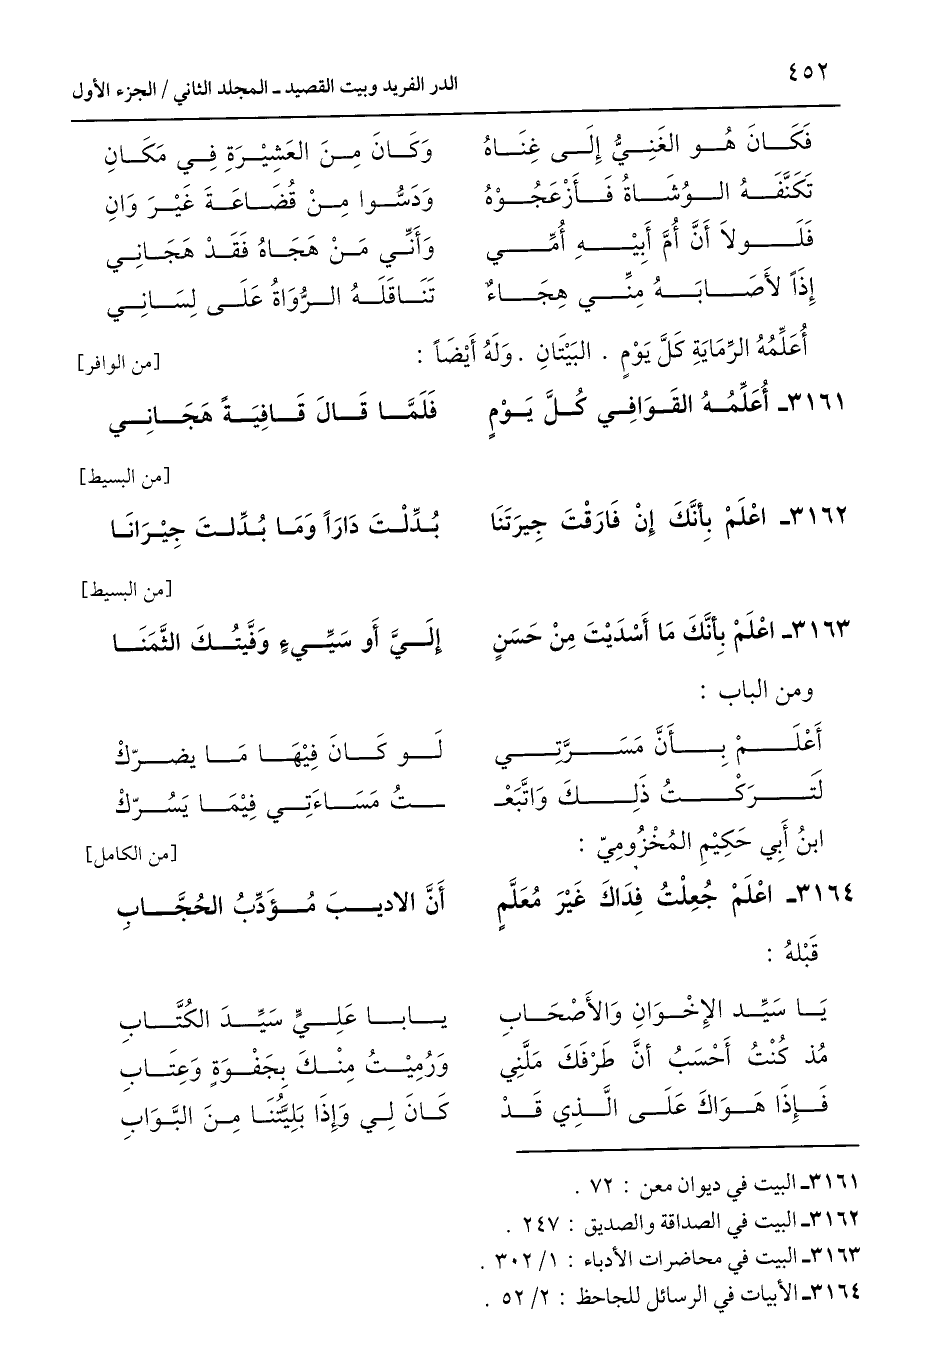 ٤٥٢
الدر الفريد وبيت القصيد ـ المجلد الثاني / الجزء الأول
فَكَـانَ هُـو الغَنِـيُّ إلَـى غِنَـاهُ وَكَـانَ مِـنَ العَشِيْـرَةِ فِـي مَكَـانِ
تَكَنَّفَـهُ الـوُشَـاةُ فَـأزْعَجُـوْهُ وَدَسُّـوا مِـنْ قُضَـاعَـةَ غَيْـرَ وَانِ
فَلَـولاَ أنَّ أُمَّ أبِيْـهِ أُمِّـي وَأنِّـي مَـنْ هَجَـاهُ فَقَـدْ هَجَـانِـي
إذَاً لأصَـابَـهُ مِنِّـي هِجَـاءٌ تَنَـاقَلَـهُ الـرُّوَاةُ عَلَـى لِسَـانِـي
أُعَلِّمُهُ الرِّمَايَةِ كَلَّ يَوْمٍ . البَيْتَانِ . وَلَهُ أيْضَاً :
[من الوافر]
٣١٦١ـ أُعَلِّمُـهُ القَـوَافِـي كُـلَّ يَـوْمٍ فَلَمَّـا قَـالَ قَـافِيَـةً هَجَـانِـي
[من البسيط]
٣١٦٢ـ اعْلَمْ بِأنَّكَ إنْ فَارَقْتَ جِيرَتَنَا بُـدِّلْـتَ دَارَاً وَمَـا بُـدِّلـتَ جِيْـرَانَـا
[من البسيط]
٣١٦٣ـ اعْلَمْ بِأنَّكَ مَا أسْدَيْتَ مِنْ حَسَنٍ إلَـيَّ أو سَيِّـيءٍ وَفَّيتُـكَ الثَّمَنَـا
ومن الباب :
أعْلَـمْ بِـأنَّ مَسَـرَّتِـي لَـو كَـانَ فِيْهَـا مَـا يضـرّكْ
لَتَـرَكْـتُ ذَلِـكَ وَاتَّبَعْـ ـتُ مَسَـاءَتِـي فِيْمَـا يَسُـرّكْ
ابنُ أبي حَكِيْمِ المُخْزُومِيّ :
[من الكامل]
٣١٦٤ـ اعْلَمْ جُعِلْتُ فِدَاكَ غَيْرَ مُعَلَّمٍ أنَّ الاديـبَ مُـؤَدِّبُ الحُجَّـابِ
قَبْلهُ :
يَـا سَيِّـد الإخْـوَانِ وَالأصْحَـابِ يـابـا عَلِـيٍّ سَيِّـدَ الكُتَّـابِ
مُذ كُنْتُ أحْسَبُ أنَّ طَرْفَكَ مَلَّنِي وَرُمِيْـتُ مِنْـكَ بِجَفْـوَةٍ وَعِتَـابِ
فَـإذَا هَـوَاكَ عَلَـى الَّـذِي قَـدْ كَـانَ لِـي وَإذَا بَلِيَّتُنَـا مِـنَ البَّـوَابِ
٣١٦١ـ البيت في ديوان معن : ٧٢ .
٣١٦٢ـ البيت في الصداقة والصديق : ٢٤٧ .
٣١٦٣ـ البيت في محاضرات الأدباء : ١/ ٣٠٢ .
٣١٦٤ـ الأبيات في الرسائل للجاحظ : ٢/ ٥٢ .